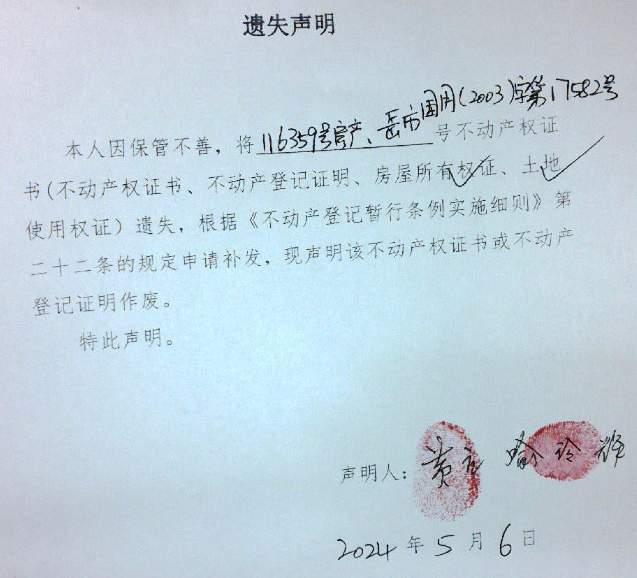 遗失声明
本人因保管不善，将116359号房产、岳市国用(2003)字第17582号号不动产权证
书(不动产权证书、不动产登记证明、房屋所有权证、土地
使用权证）遗失，根据《不动产登记暂行条例实施细则》第
二十二条的规定申请补发，现声明该不动产权证书或不动产
登记证明作废。
特此声明。
声明人：黄
2024年5月6日